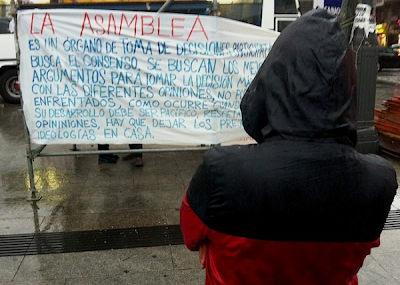 LA ASAMBLEA
ES UN ÓRGANO DE TOMA DE DECISIONES
BUSCA EL CONSENSO, SE BUSCAN LOS
ARGUMENTOS PARA TOMAR LA DECISION
CON LAS DIFERENTES OPINIONES, NO
ENFRENTADOS, COMO OCURRE
SU DESARROLLO DEBE SER PACÍFICO,
OPINIONES, HAY QUE DEJAR LOS
IDEOLOGÍAS EN CASA.